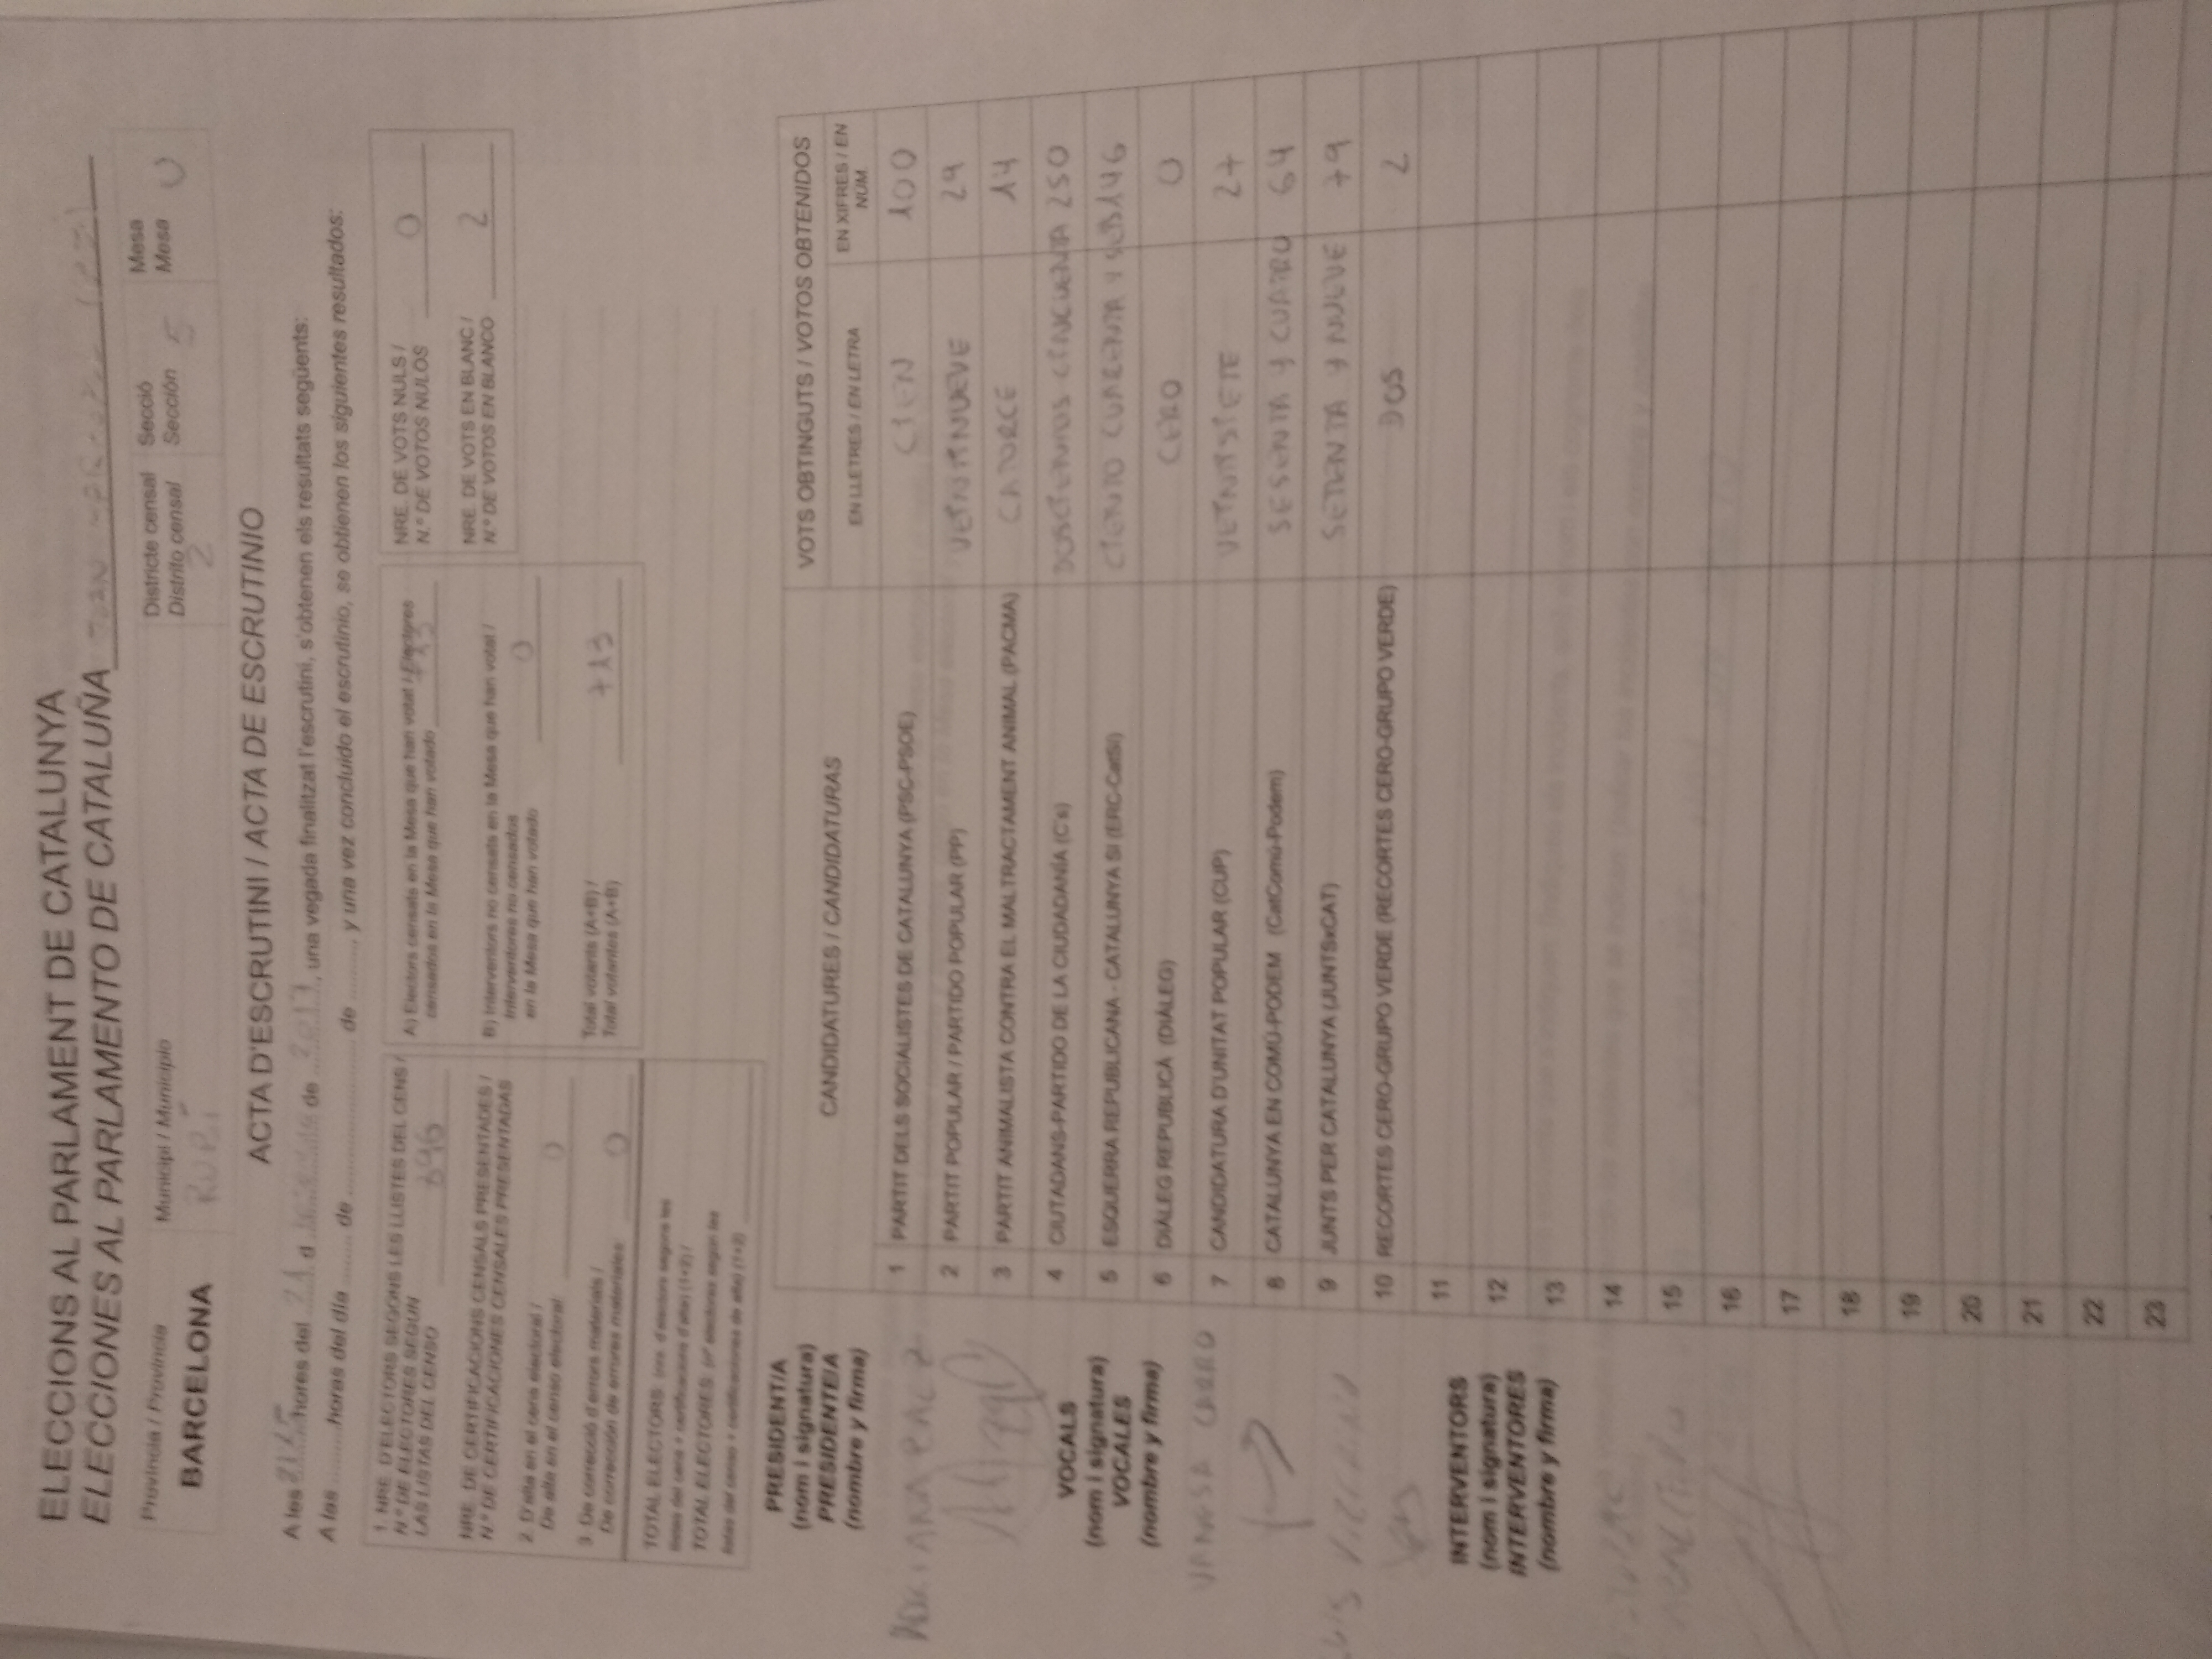 ELECCIONS AL PARLAMENT DE CATALUNYA
ELECCIONES AL PARLAMENTO DE CATALUÑA
Provincia / Provincia
BARCELONA
Municipi / Municipio
RUBÍ
Districte censal
Distrito censal
2
Secció
Sección 5
Mesa
Mesa U
ACTA D'ESCRUTINI / ACTA DE ESCRUTINIO
A les hores del 21 d de 2017, una vegada finalitzat l'escrutini, s'obtenen els resultats següents:
A las ......... horas del día ........ de ........................ de ......... y una vez concluido el escrutinio, se obtienen los siguientes resultados:
1. NRE. D'ELECTORS SEGONS LES LLISTES DEL CENS /
N.º DE ELECTORES SEGÚN
LAS LISTAS DEL CENSO 896
NRE. DE CERTIFICACIONS CENSALS PRESENTADES /
N.º DE CERTIFICACIONES CENSALES PRESENTADAS
2. D'alta en el cens electoral /
De alta en el censo electoral: 0
3. De correcció d'errors materials /
De corrección de errores materiales: 0
TOTAL ELECTORS: (nre. d'electors segons les
llistes del cens + certificacions d'alta) (1+2) /
TOTAL ELECTORES: (nº electores según las
listas del censo + certificaciones de alta) (1+2)
A) Electors censats en la Mesa que han votat / Electores
censados en la Mesa que han votado 713
B) Interventors no censats en la Mesa que han votat /
Interventores no censados
en la Mesa que han votado 0
Total votants (A+B) /
Total votantes (A+B) 713
NRE. DE VOTS NULS /
N.º DE VOTOS NULOS 0
NRE. DE VOTS EN BLANC /
N.º DE VOTOS EN BLANCO 2
PRESIDENT/A
(nom i signatura)
PRESIDENTE/A
(nombre y firma)
ADRIANA PAEZ
VOCALS
(nom i signatura)
VOCALES
(nombre y firma)
VANESA CARRO
INTERVENTORS
(nom i signatura)
INTERVENTORES
(nombre y firma)
CANDIDATURES / CANDIDATURAS
VOTS OBTINGUTS / VOTOS OBTENIDOS
EN LLETRES / EN LETRA
EN XIFRES / EN
NÚM.
1 PARTIT DELS SOCIALISTES DE CATALUNYA (PSC-PSOE) CIEN 100
2 PARTIT POPULAR / PARTIDO POPULAR (PP) VEINTINUEVE 29
3 PARTIT ANIMALISTA CONTRA EL MALTRACTAMENT ANIMAL (PACMA) CATORCE 14
4 CIUTADANS-PARTIDO DE LA CIUDADANÍA (C's) DOSCIENTOS CINCUENTA 250
5 ESQUERRA REPUBLICANA - CATALUNYA SÍ (ERC-CatSí) CIENTO CUARENTA Y SEIS 146
6 DIÀLEG REPUBLICÀ (DIÀLEG) CERO 0
7 CANDIDATURA D'UNITAT POPULAR (CUP) VEINTISIETE 27
8 CATALUNYA EN COMÚ-PODEM (CatComú-Podem) SESENTA Y CUATRO 64
9 JUNTS PER CATALUNYA (JUNTSxCAT) SETENTA Y NUEVE 79
10 RECORTES CERO-GRUPO VERDE (RECORTES CERO-GRUPO VERDE) DOS 2
11
12
13
14
15
16
17
18
19
20
21
22
23